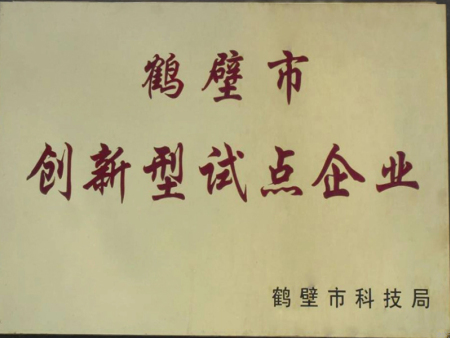 鹤壁市
创新型试点企业
鹤壁市科技局